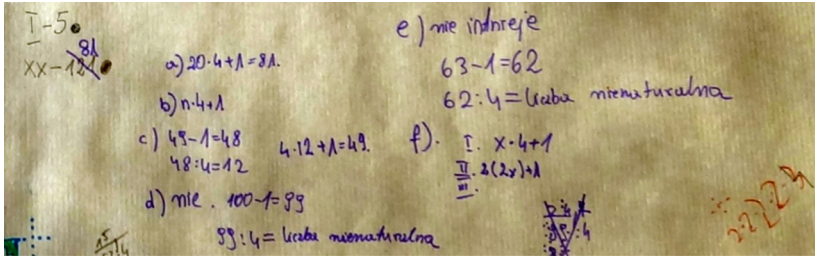 I-5.
81
XX-121
a) 20·4+1=81.
b) n·4+1
c) 49-1=48
48:4=12
4·12+1=49.
d) nie. 100-1=99
99:4= liczba nienaturalna
e) nie istnieje
63-1=62
62:4= liczba nienaturalna
f). I. x·4+1
II. 2(2x)+1
III.